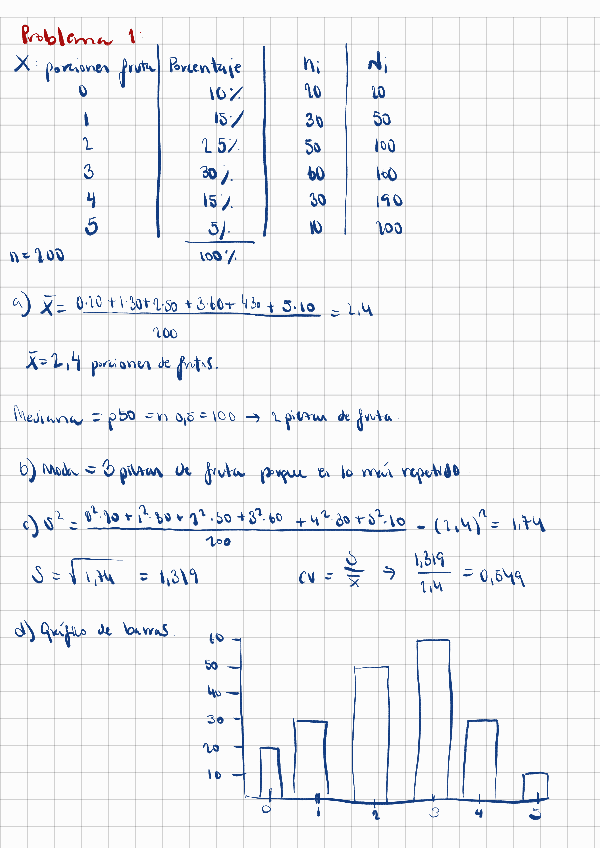 Problema 1:
X: porciones fruta Porcentaje ni Ni
0 10% 20 20
1 15% 30 50
2 25% 50 100
3 30% 60 160
4 15% 30 190
5 5% 10 200
n = 200 100%
a) x̄ = 0·20 + 1·30 + 2·50 + 3·60 + 4·30 + 5·10 = 2,4
200
x̄ = 2,4 porciones de frutas.
Mediana = p50 = n·0,5 = 100 → 2 piezas de fruta.
b) Moda = 3 piezas de fruta porque es lo más repetido
c) s² = 0²·20 + 1²·30 + 2²·50 + 3²·60 + 4²·30 + 5²·10 - (2,4)² = 1,74
200
S = √1,74 = 1,319 CV = S/x̄ → 1,319/2,4 = 0,549
d) Gráfico de barras.
60
50
40
30
20
10
0 1 2 3 4 5